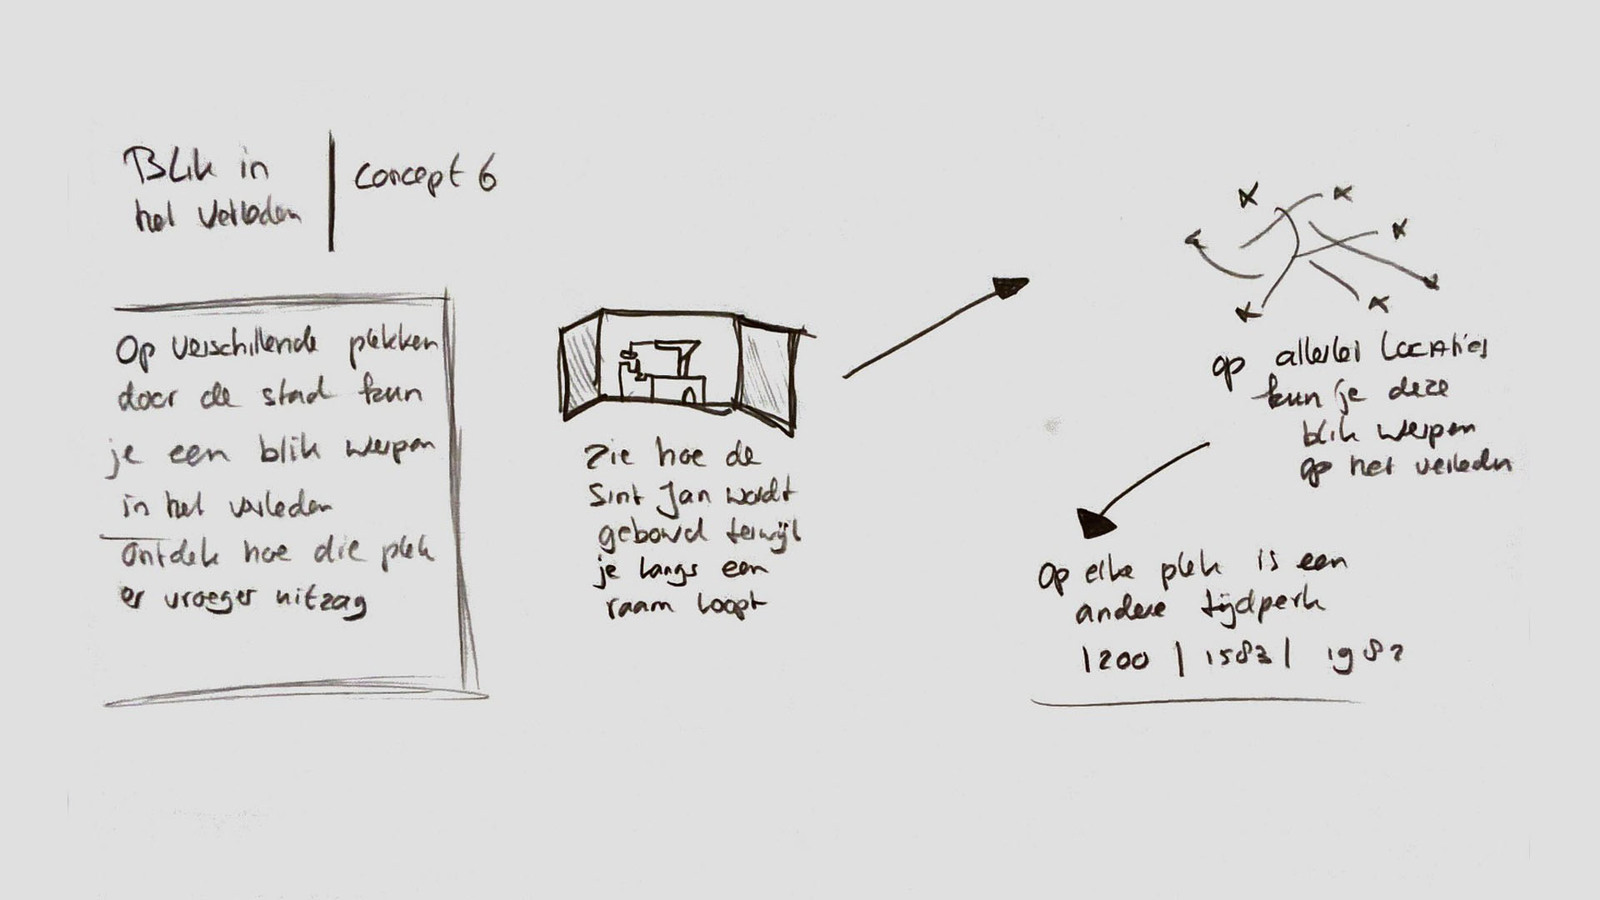 Blik in
het verleden
concept 6
Op verschillende plekken
door de stad kun
je een blik werpen
in het verleden
Ontdek hoe die plek
er vroeger uitzag
Zie hoe de
Sint Jan wordt
gebouwd terwijl
je langs een
raam loopt
op allerlei locaties
kun je deze
blik werpen
op het verleden
Op elke plek is een
andere tijdperk
1200 | 1583 | 1982